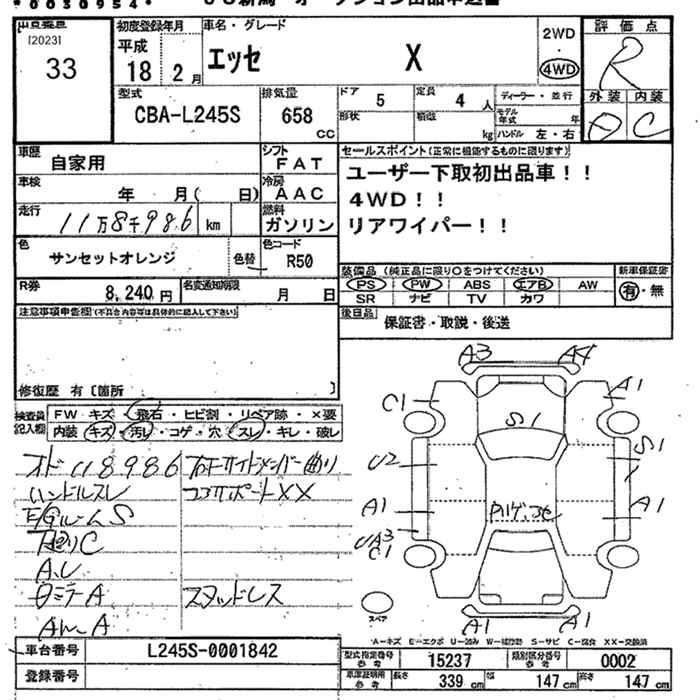 *0030954*
[2023]
33
初度登録年月
平成
18 2月
車名・グレード
エッセ X
2WD
4WD
評価点
R
外装 内装
D C
型式
CBA-L245S
排気量
658 CC
ドア
5
定員
4 人
形状
積載
kg
ディーラー・並行
モデル年式 年
ハンドル 左・右
車歴
自家用
シフト
FAT
車検
年 月( 日)
冷房
AAC
走行
11万8千986 km
燃料
ガソリン
色
サンセットオレンジ
色替
色コード
R50
R券
8,240円
名変通知期限
月 日
セールスポイント(正常に機能するものに限ります)
ユーザー下取初出品車!!
4WD!!
リアワイパー!!
装備品(純正品に限り○をつけてください)
PS PW ABS エアB AW
SR ナビ TV カワ
新車保証書
有・無
後日品
保証書・取説・後送
注意事項申告欄(不具合内容等は具体的に記入して下さい)
修復歴 有〔箇所 〕
検査員記入欄
FW キズ・飛石・ヒビ割・リペア跡・×要
内装 キズ・汚レ・コゲ・穴・スレ・キレ・破レ
オド 118986
ハンドルスレ
E/GルームS
下廻りC
右F サイドメンバー曲り
コアサポートXX
スタッドレス
A3 A4
C1 A1
S1
U2 S1
A1 A1
C1
A1 A1
スペア
A-キズ E-エクボ U-凹み W-補修跡 S-サビ C-腐食 XX-交換済
車台番号
L245S-0001842
登録番号
型式指定番号 参考
15237
類別区分番号 参考
0002
車庫証明用 参考
長さ 339 cm 幅 147 cm 高さ 147 cm